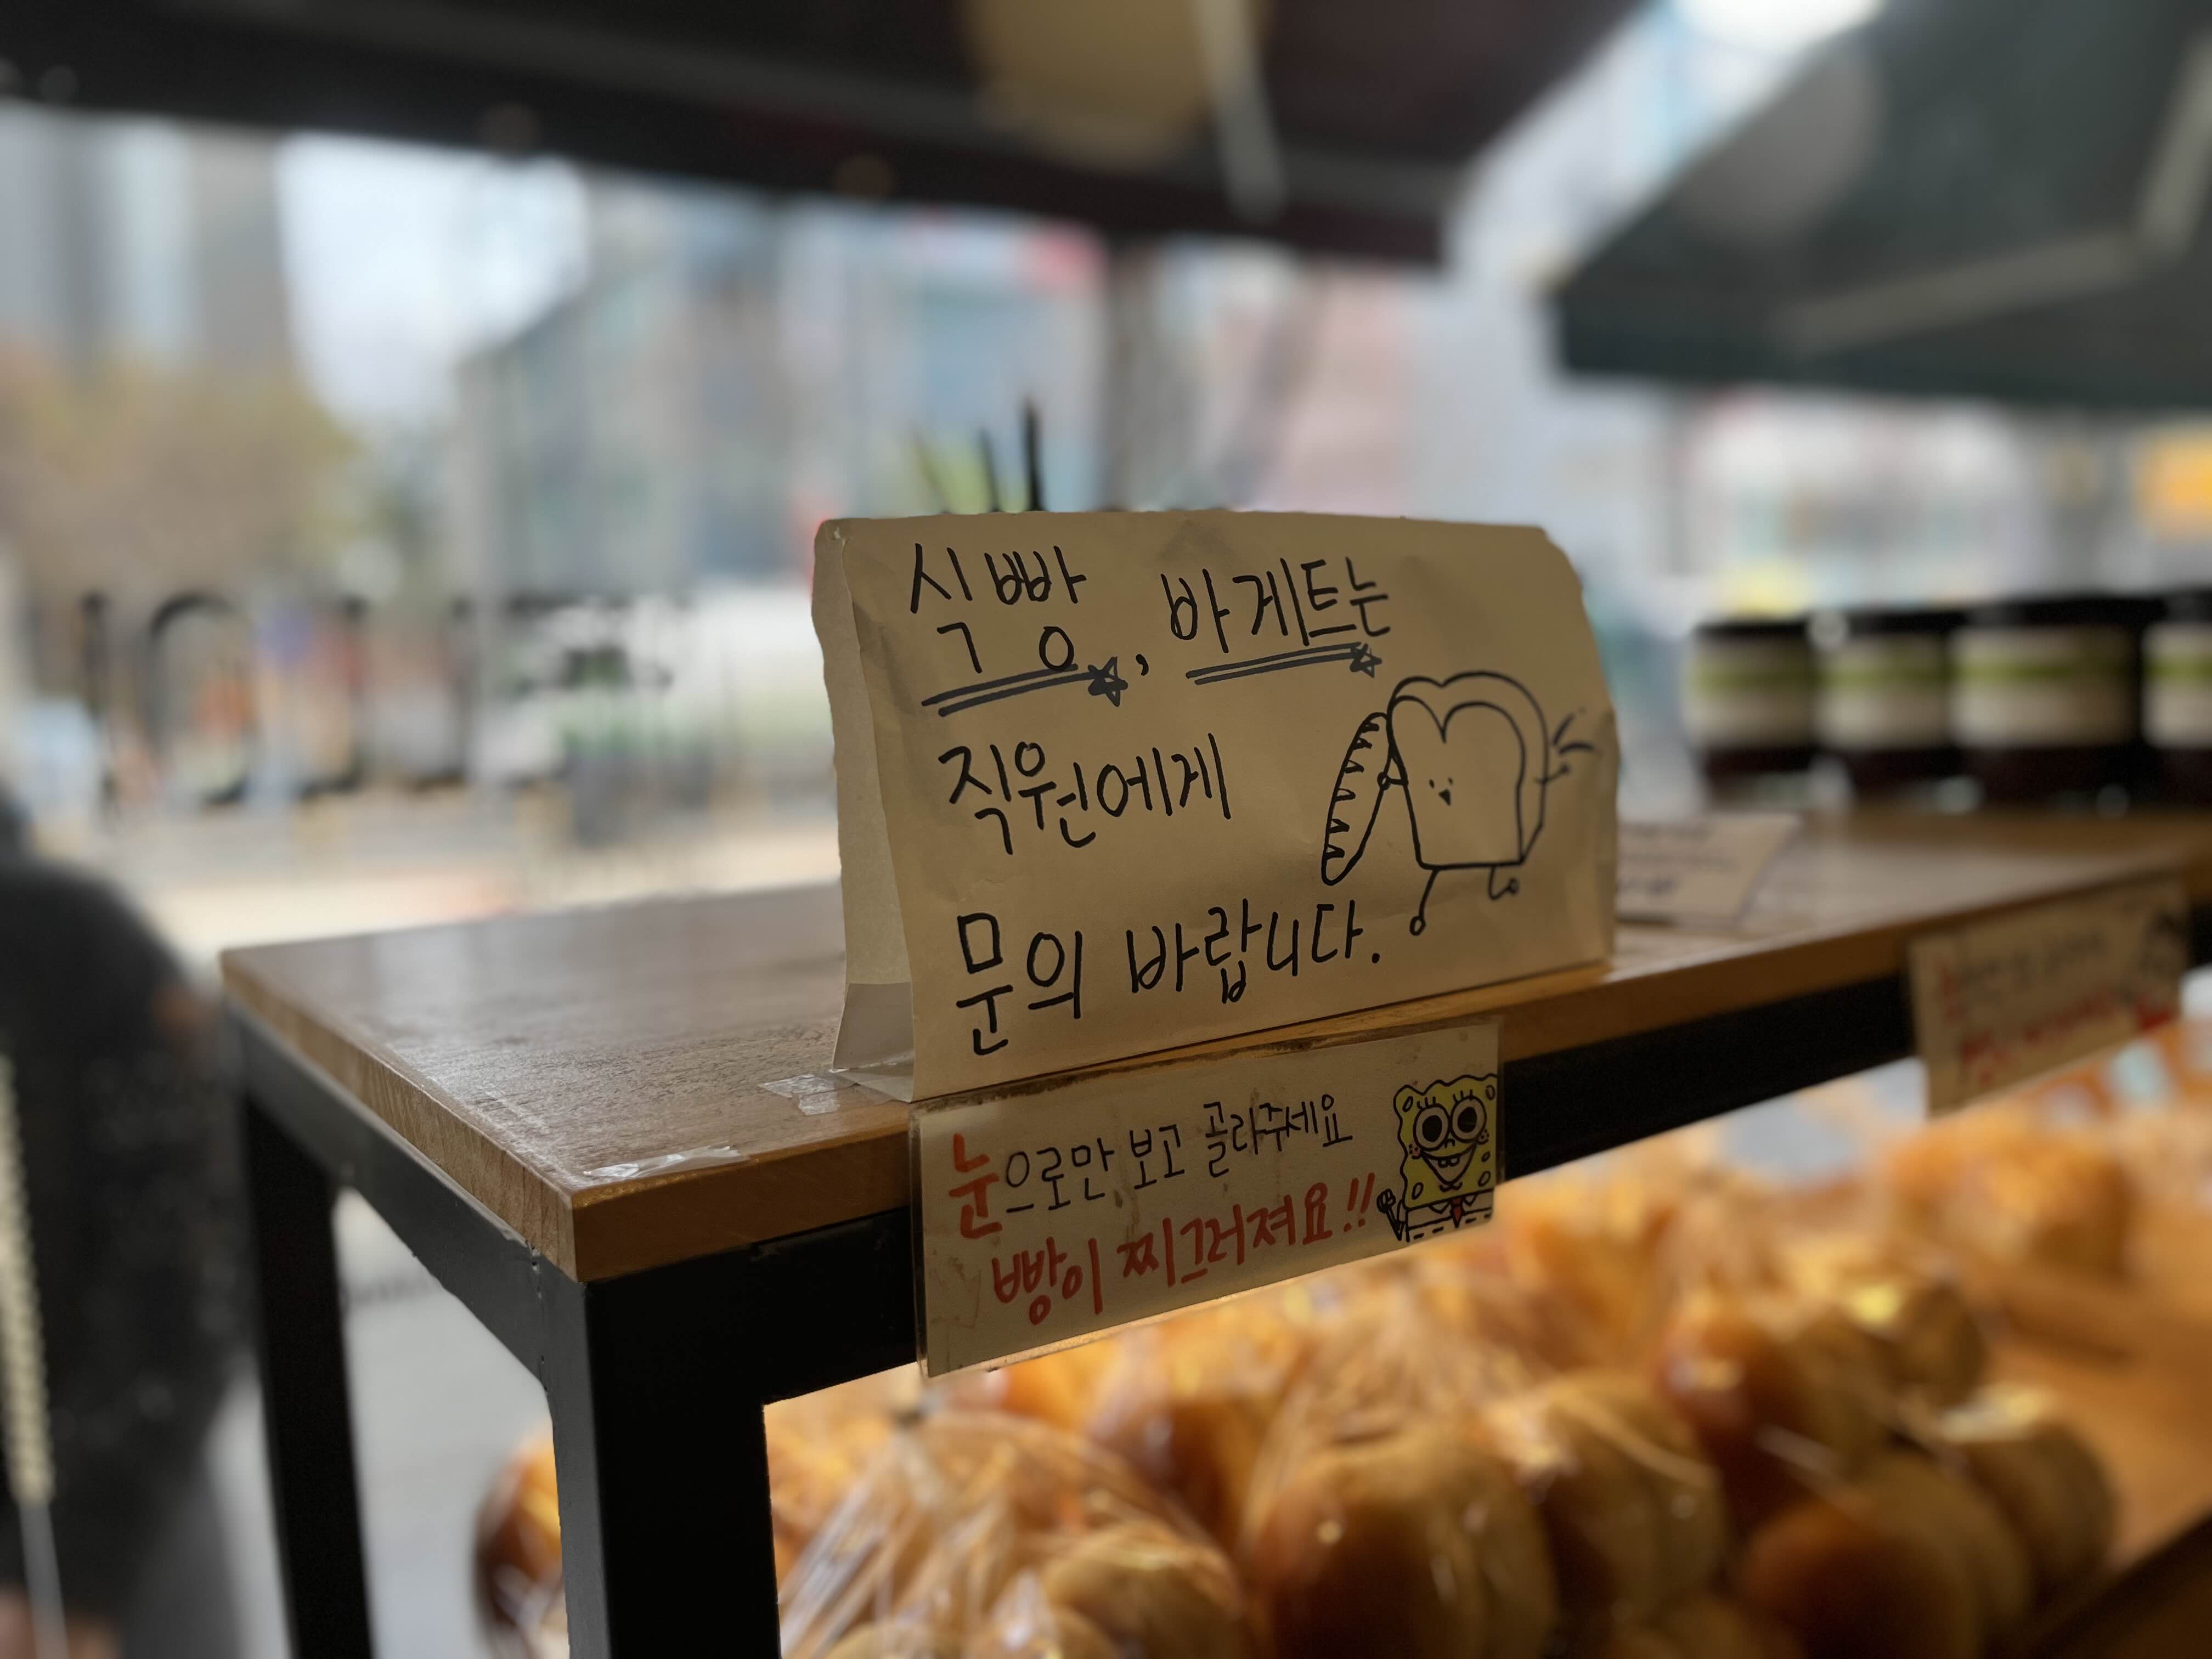 식빵, 바게트는
직원에게
문의 바랍니다.
눈으로만 보고 골라주세요
빵이 찌그러져요!!